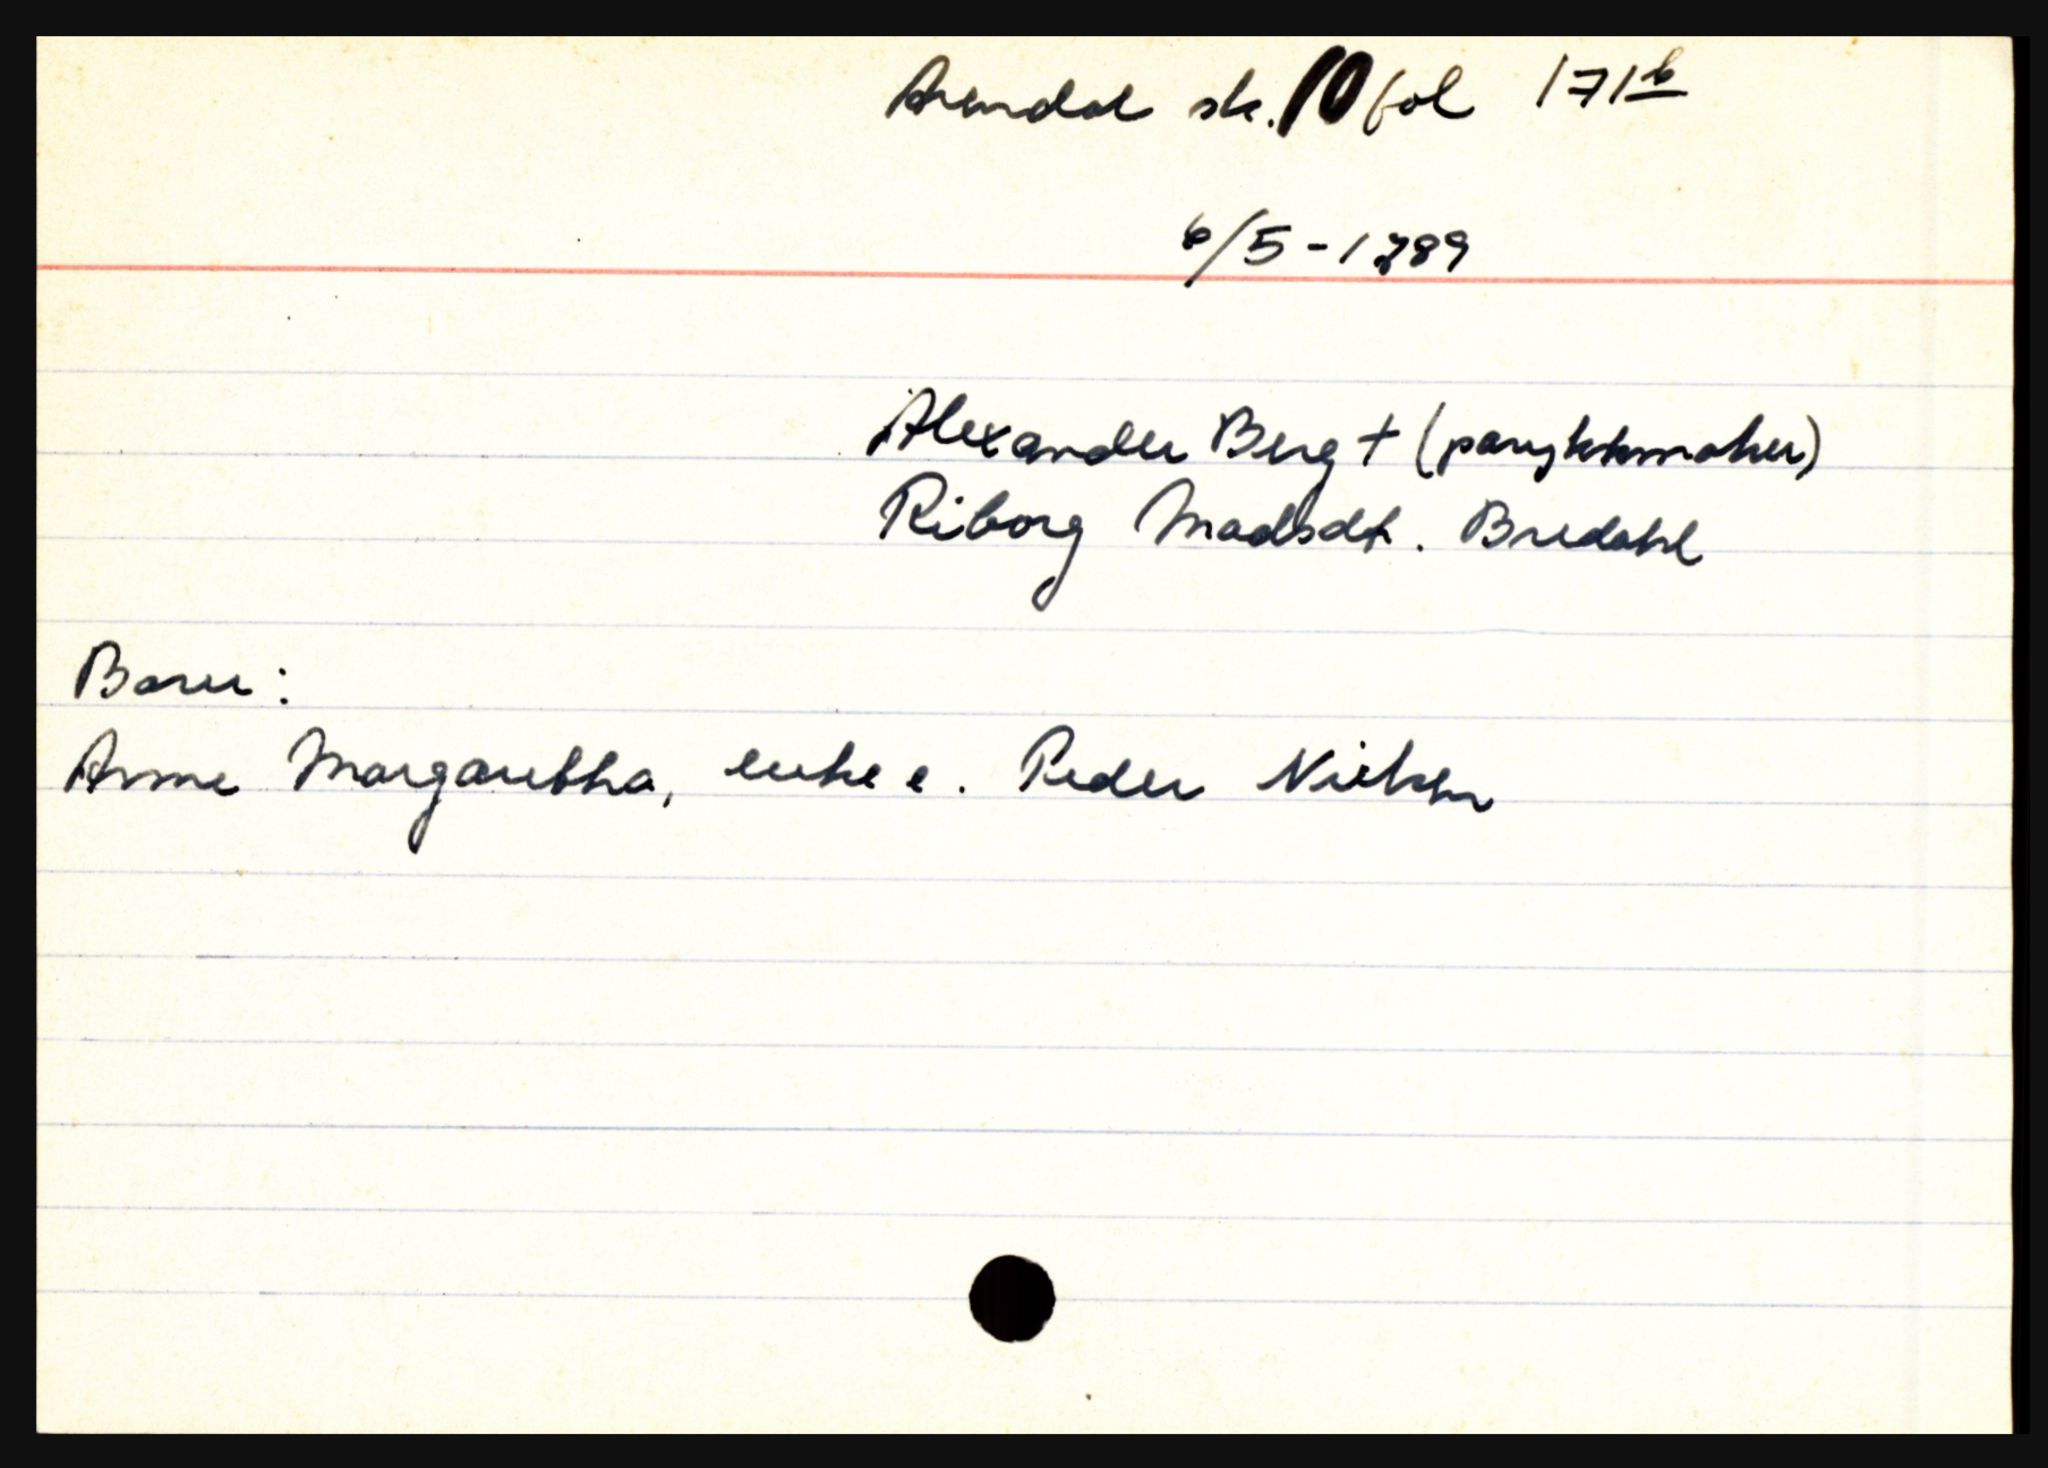 Arendal sk. 10 fol 171b
6/5-1789
Alexander Berg + (parykkmaker)
Riborg Madsdt. Bredahl
Barn:
Anne Margarethha, enke e. Peder Nielsen